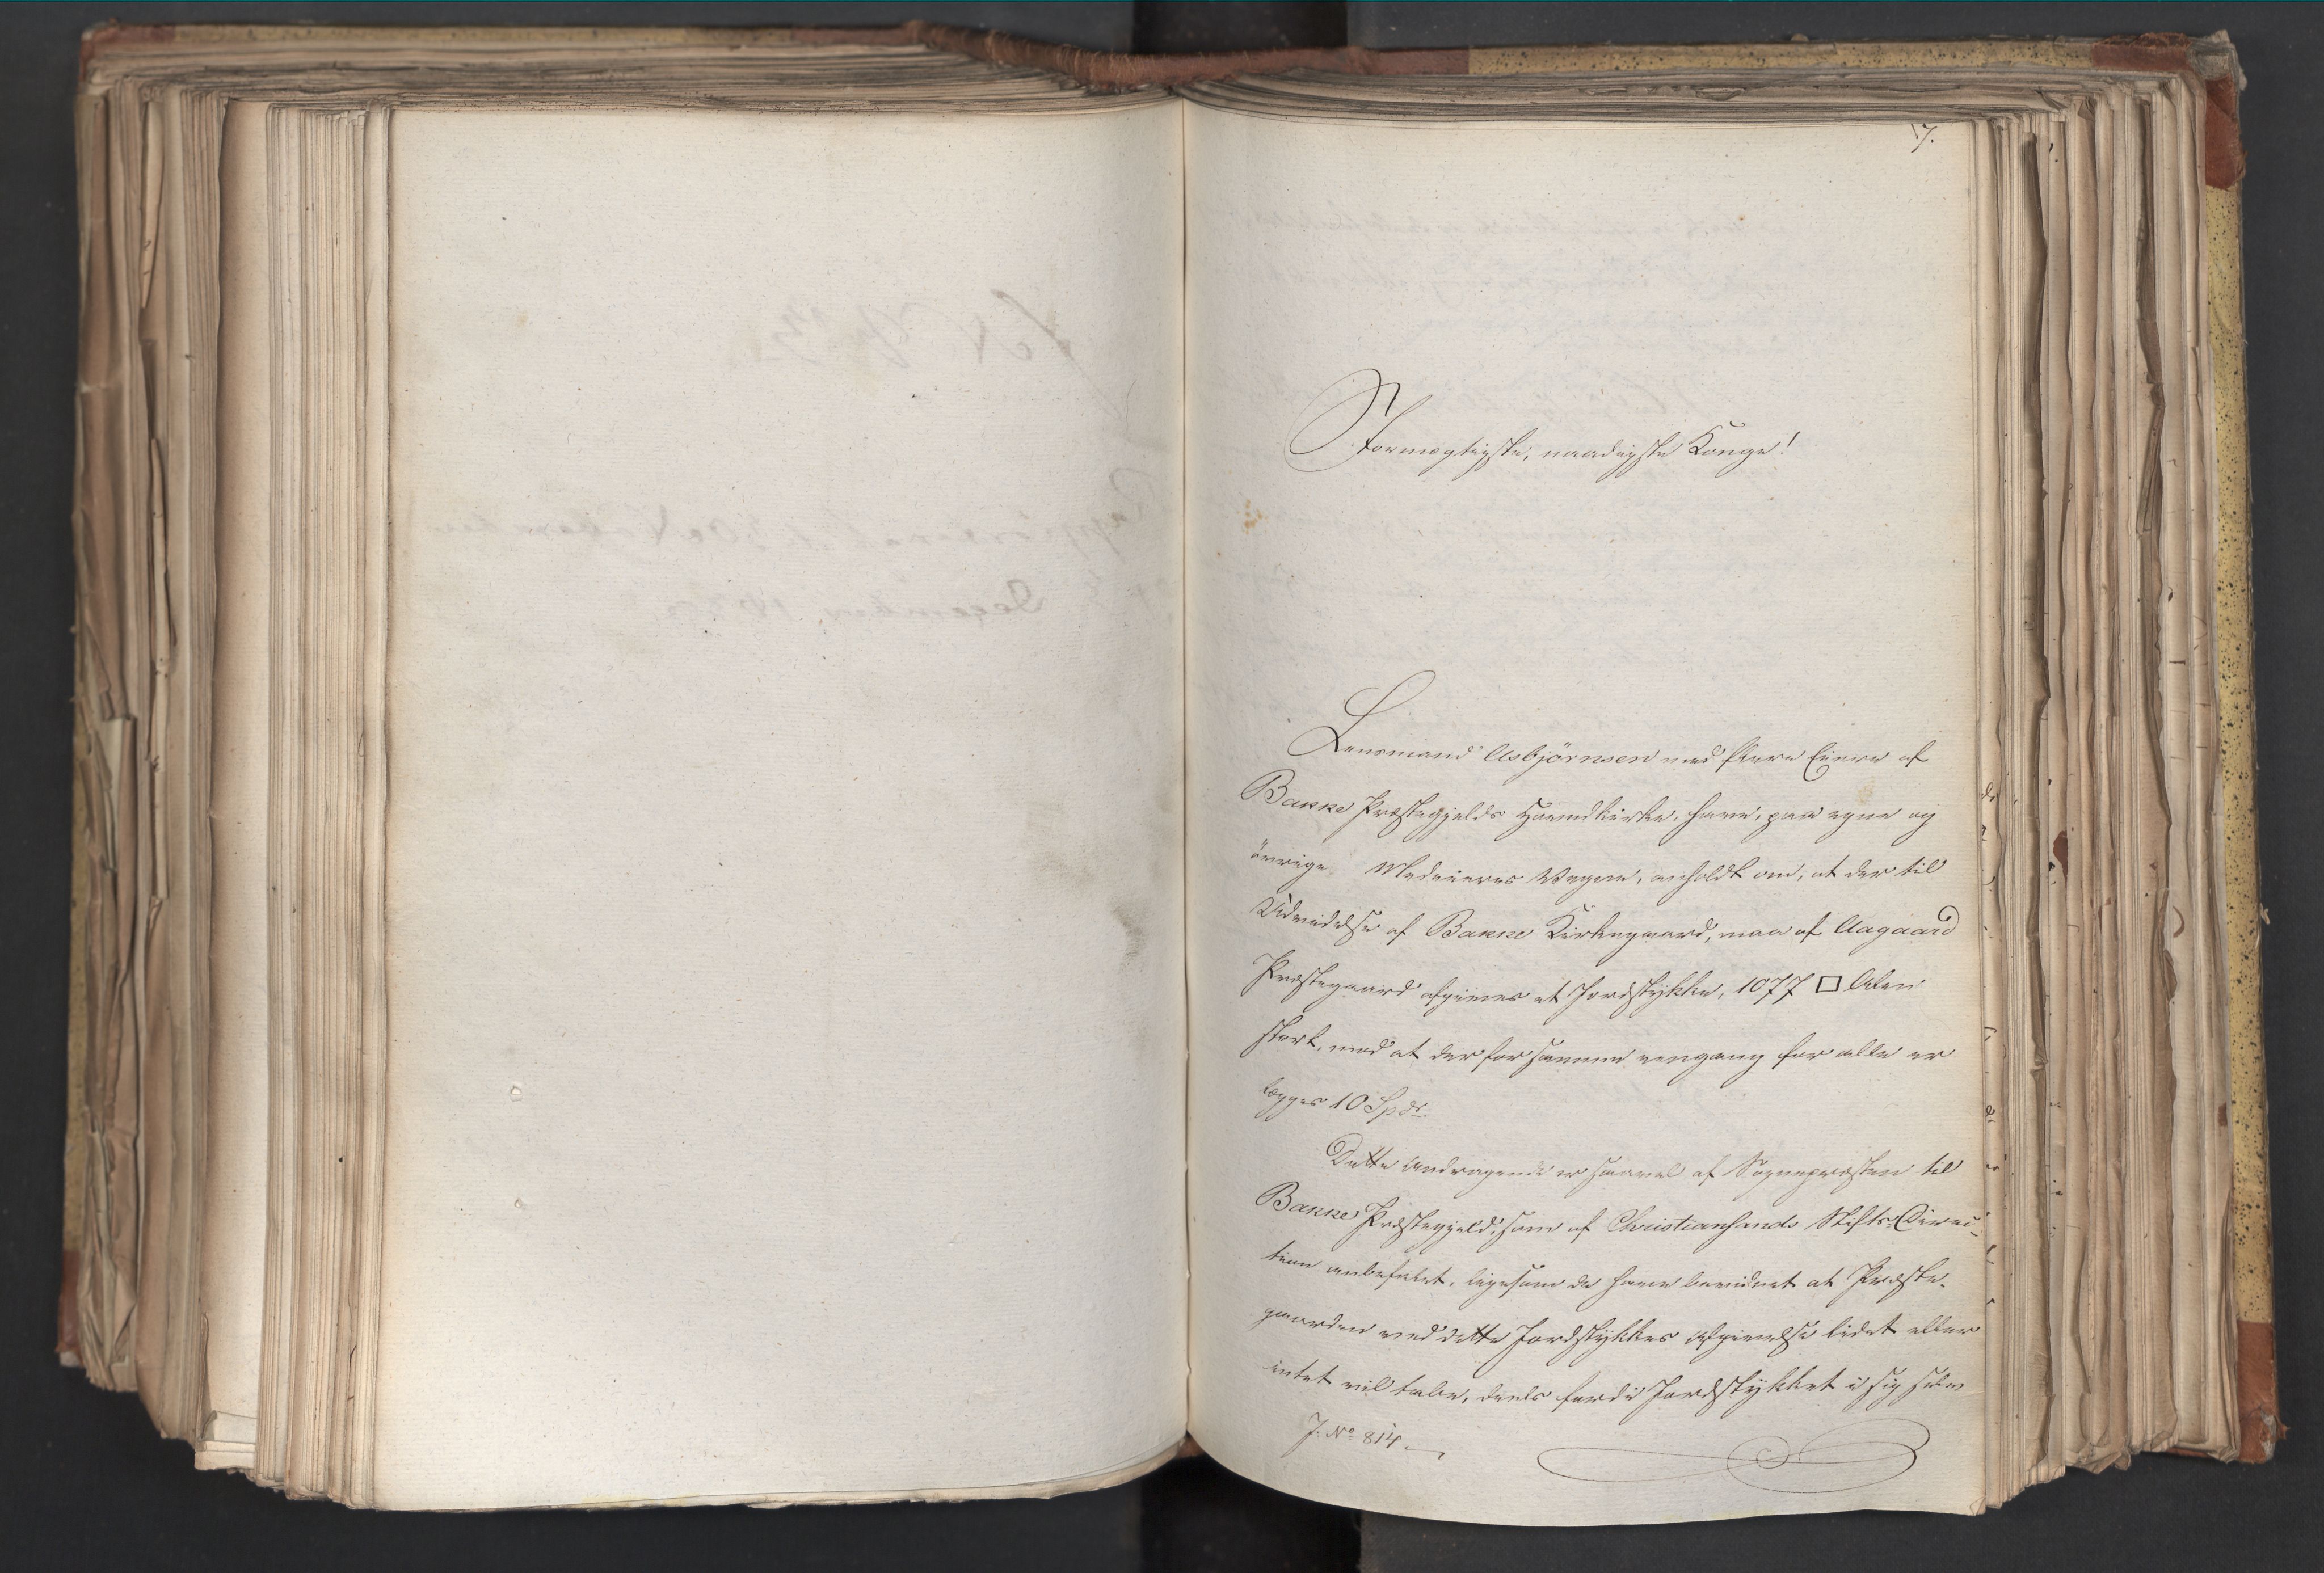 7.
Stormægtigste, naadigste Konge!
Lensmand Asbjörnsen med flere Eiere af
Bakke Præstegjelds Hovedkirke, have, paa egne og
övrige Medeieres Vegne, anholdt om, at der til
Udvidelse af Bakke Kirkegaard, maa af Aagaard
Præstegaard afgives et Jordstykke, 1077 □ Alen
stort, mod at der for samme eengang for alle er
lægges 10 Spdr.
Dette Andragende er saavel af Sognepræsten til
Bakke Præstegjeld, som af Christiansands Stifts-Direc-
tion anbefalet, ligesom de have bevidnet at Præste-
gaarden ved dette Jordstykkes Afgivelse lidet eller
intet vil tabe, deels fordi Jordstykket i sig selv
J. No 814.